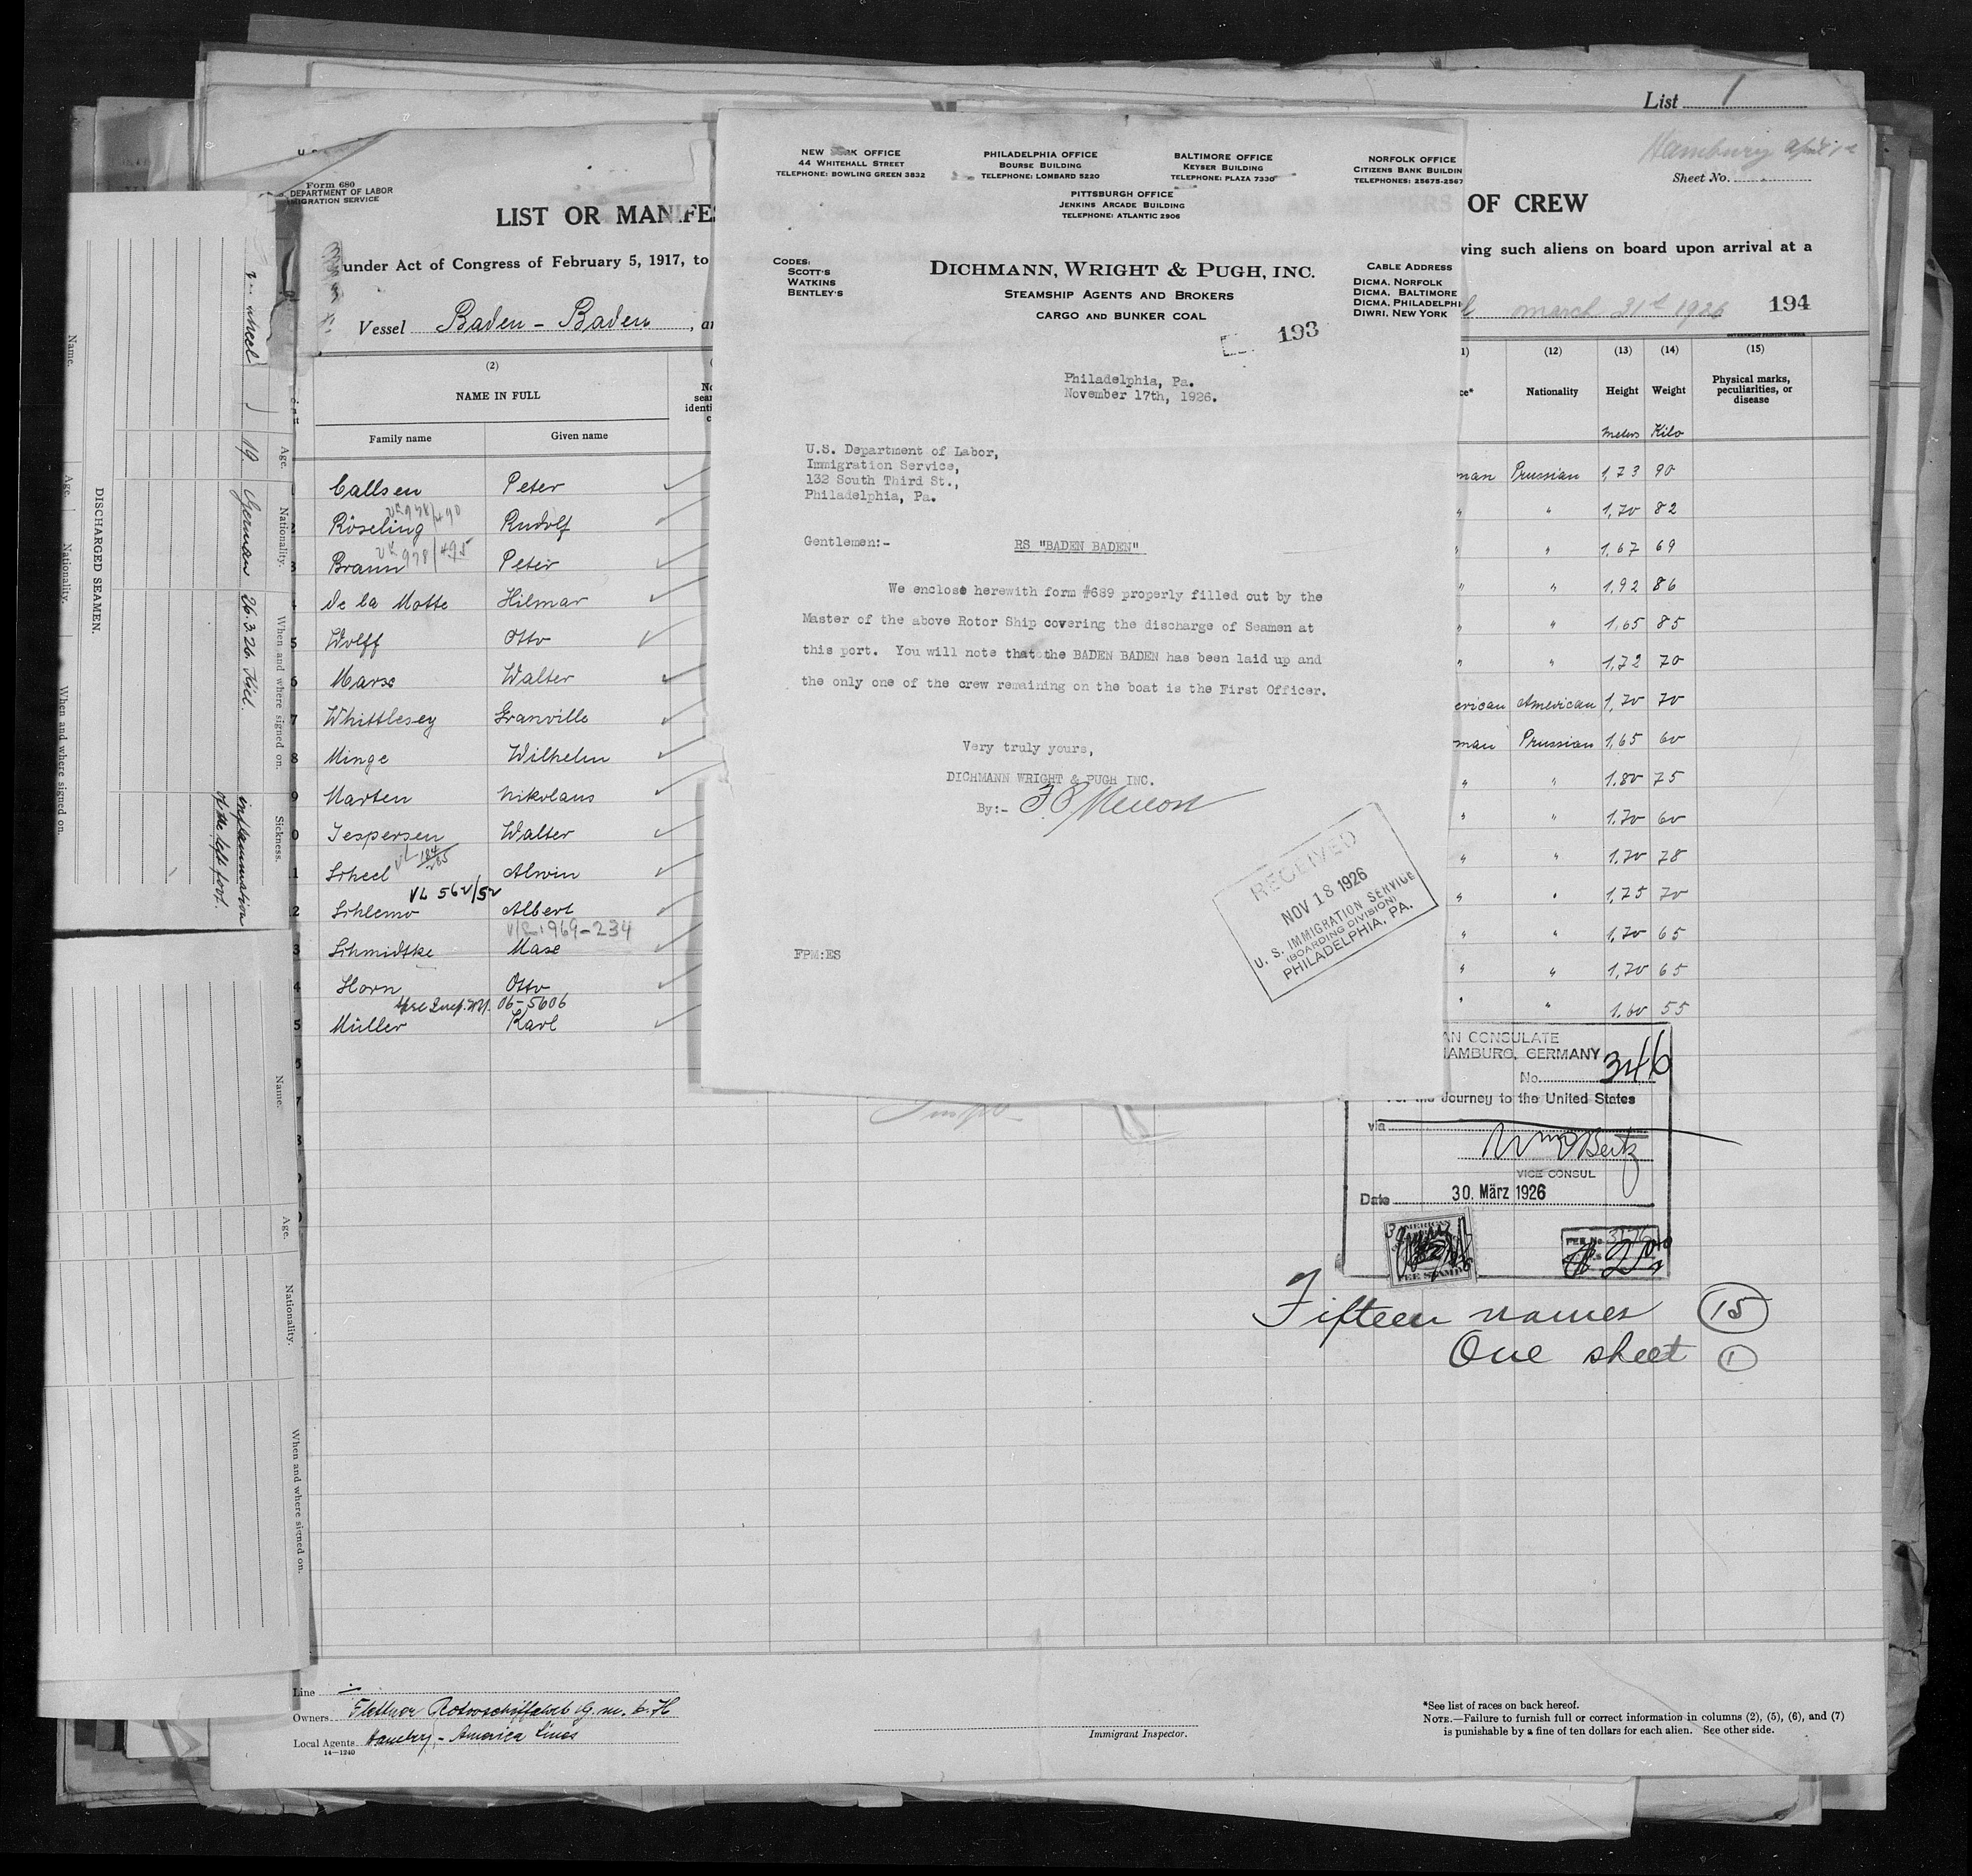 List 1
Hamburg April
Sheet No.
Form 680
DEPARTMENT OF LABOR
IGRATION SERVICE
LIST OR MANIFES
OF CREW
under Act of Congress of February 5, 1917, to
ving such aliens on board upon arrival at a
Vessel Baden-Baden, ar
march 31st 1926 194
(2)
NAME IN FULL
Family name Given name
(12) (13) (14) (15)
Nationality Height Weight Physical marks, peculiarities, or disease
meters Kilo
Callsen Peter
VL 978/490
Röseling Rudolf
VL 978/495
Braun Peter
de la Motte Hilmar
5 Wolff Otto
6 Marx Walter
7 Whittlesey Granville
8 Minge Wilhelm
9 Marten Nikolaus
0 Jespersen Walter
1 Scheel Alwin
VL 184/285
VL 562/52
2 Schlemo Albert
VL 1969-234
3 Schmidtke Max
4 Horn Otto
06-5606
5 Müller Karl
man Prussian 1,73 90
" " 1,70 82
" " 1,67 69
" " 1,92 86
" " 1,65 85
" " 1,72 70
erican American 1,70 70
man Prussian 1,65 60
" " 1.80 75
" " 1.70 60
" " 1.70 78
" " 1.75 70
" " 1,70 65
" " 1,70 65
" " 1.60 55
NEW YORK OFFICE
44 WHITEHALL STREET
TELEPHONE: BOWLING GREEN 3832
PHILADELPHIA OFFICE
BOURSE BUILDING
TELEPHONE: LOMBARD 5220
BALTIMORE OFFICE
KEYSER BUILDING
TELEPHONE: PLAZA 7330
NORFOLK OFFICE
CITIZENS BANK BUILDIN
TELEPHONES: 25675-2567
PITTSBURGH OFFICE
JENKINS ARCADE BUILDING
TELEPHONE: ATLANTIC 2906
CODES:
SCOTT'S
WATKINS
BENTLEY'S
DICHMANN, WRIGHT & PUGH, INC.
STEAMSHIP AGENTS AND BROKERS
CARGO AND BUNKER COAL
CABLE ADDRESS
DICMA, NORFOLK
DICMA, BALTIMORE
DICMA, PHILADELPHI
DIWRI, NEW YORK
193
Philadelphia, Pa.
November 17th, 1926.
U.S. Department of Labor,
Immigration Service,
132 South Third St.,
Philadelphia, Pa.
Gentlemen:-
RS "BADEN BADEN"
We enclose herewith form #689 properly filled out by the
Master of the above Rotor Ship covering the discharge of Seamen at
this port. You will note that the BADEN BADEN has been laid up and
the only one of the crew remaining on the boat is the First Officer.
Very truly yours,
DICHMANN WRIGHT & PUGH INC.
By:-
FPM:ES
RECEIVED
NOV 18 1926
U. S. IMMIGRATION SERVICE
(BOARDING DIVISION)
PHILADELPHIA, PA.
AN CONSULATE
HAMBURG, GERMANY
No. 346
For the Journey to the United States
via
VICE CONSUL
Date 30. März 1926
AMERICAN
FEE STAMP
FEE No 3576
Fifteen names 15
One sheet 1
Line
Owners Flettner Rotorschiffahrt G.m.b.H
Local Agents Hamburg-America Lines
14-1240
Immigrant Inspector.
*See list of races on back hereof.
NOTE.—Failure to furnish full or correct information in columns (2), (5), (6), and (7)
is punishable by a fine of ten dollars for each alien. See other side.
DISCHARGED SEAMEN.
Name. Age. Nationality. When and where signed on.
Age. Nationality. When and where signed on. Sickness.
19 German 26.3.26. Kiel. inflammation
of the left foot.
Name. Age. Nationality. When and where signed on.